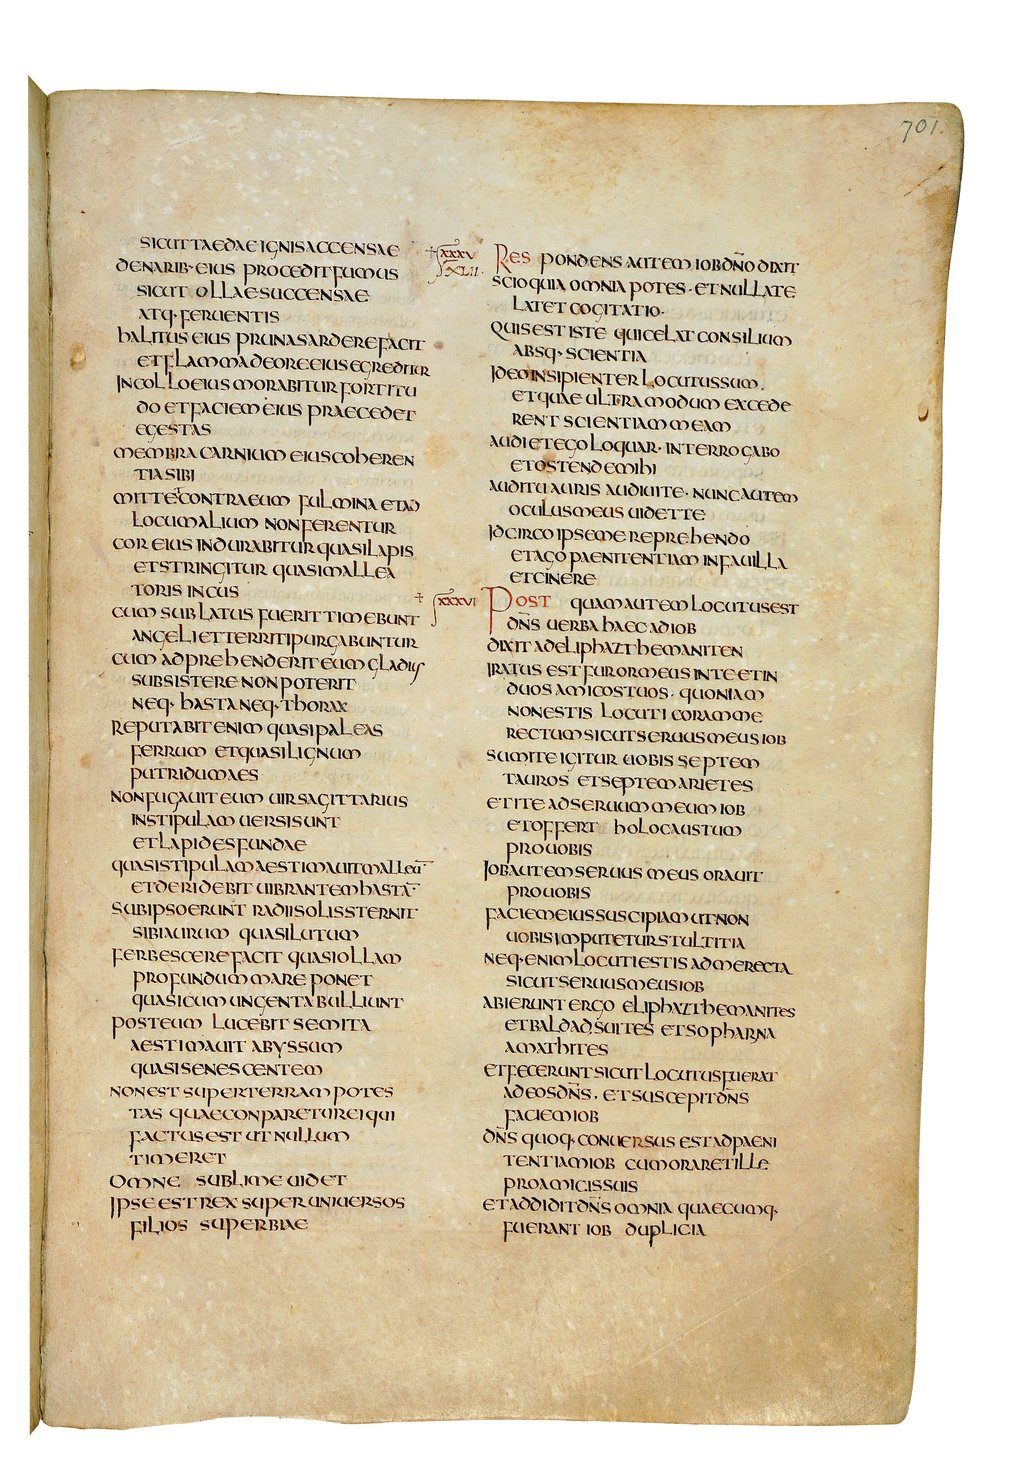 701.
SICUT TAEDAE IGNIS ACCENSAE
DE NARIB· EIUS PROCEDIT FUMUS
SICUT OLLAE SUCCENSAE
ATQ· FERUENTIS
HALITUS EIUS PRUNAS ARDERE FACIT
ET FLAMMA DE ORE EIUS EGREDITUR
IN COLLO EIUS MORABITUR FORTITU
DO ET FACIEM EIUS PRAECEDET
EGESTAS
MEMBRA CARNIUM EIUS COHEREN
TIA SIBI
MITTET CONTRA EUM FULMINA ET AD
LOCUM ALIUM NON FERENTUR
COR EIUS INDURABITUR QUASI LAPIS
ET STRINGITUR QUASI MALLEA
TORIS INCUS
CUM SUBLATUS FUERIT TIMEBUNT
ANGELI ET TERRITI PURGABUNTUR
CUM ADPREHENDERIT EUM GLADIUS
SUBSISTERE NON POTERIT
NEQ· HASTA NEQ· THORAX
REPUTABIT ENIM QUASI PALEAS
FERRUM ET QUASI LIGNUM
PUTRIDUM AES
NON FUGAUIT EUM UIR SAGITTARIUS
IN STIPULAM UERSI SUNT
ET LAPIDES FUNDAE
QUASI STIPULAM AESTIMAUIT MALLEU̅
ET DERIDEBIT UIBRANTEM HASTA̅
SUB IPSO ERUNT RADII SOLIS STERNIT
SIBI AURUM QUASI LUTUM
FERBESCERE FACIT QUASI OLLAM
PROFUNDUM MARE PONET
QUASI CUM UNGENTA BULLIUNT
POST EUM LUCEBIT SEMITA
AESTIMAUIT ABYSSUM
QUASI SENESCENTEM
NON EST SUPER TERRAM POTES
TAS QUAE CONPARETUR EI QUI
FACTUS EST UT NULLUM
TIMERET
OMNE SUBLIME UIDET
IPSE EST REX SUPER UNIUERSOS
FILIOS SUPERBIAE
XXXV
XLII·
RESPONDENS AUTEM IOB DN̅O DIXIT
SCIO QUIA OMNIA POTES· ET NULLA TE
LATET COGITATIO·
QUIS EST ISTE QUI CELAT CONSILIUM
ABSQ· SCIENTIA
IDEO INSIPIENTER LOCUTUS SUM·
ET QUAE ULTRA MODUM EXCEDE
RENT SCIENTIAM MEAM
AUDI ET EGO LOQUAR· INTERROGABO
ET OSTENDE MIHI
AUDITU AURIS AUDIUI TE· NUNC AUTEM
OCULUS MEUS UIDET TE
IDCIRCO IPSE ME REPREHENDO
ET AGO PAENITENTIAM IN FAUILLA
ET CINERE
XXXVI
POST QUAM AUTEM LOCUTUS EST
DN̅S UERBA HAEC AD IOB
DIXIT AD ELIPHAZ THEMANITEN
IRATUS EST FUROR MEUS IN TE ET IN
DUOS AMICOS TUOS· QUONIAM
NON ESTIS LOCUTI CORAM ME
RECTUM SICUT SERUUS MEUS IOB
SUMITE IGITUR UOBIS SEPTEM
TAUROS ET SEPTEM ARIETES
ET ITE AD SERUUM MEUM IOB
ET OFFERT HOLOCAUSTUM
PRO UOBIS
IOB AUTEM SERUUS MEUS ORAUIT
PRO UOBIS
FACIEM EIUS SUSCIPIAM UT NON
UOBIS IMPUTETUR STULTITIA
NEQ· ENIM LOCUTI ESTIS AD ME RECTA
SICUT SERUUS MEUS IOB
ABIERUNT ERGO ELIPHAZ THEMANITES
ET BALDAD SUITES ET SOPHAR NA
AMATHITES
ET FECERUNT SICUT LOCUTUS FUERAT
AD EOS DN̅S· ET SUSCEPIT DN̅S
FACIEM IOB
DN̅S QUOQ· CONUERSUS EST AD PAENI
TENTIAM IOB CUM ORARET ILLE
PRO AMICIS SUIS
ET ADDIDIT DN̅S OMNIA QUAECUMQ·
FUERANT IOB DUPLICIA